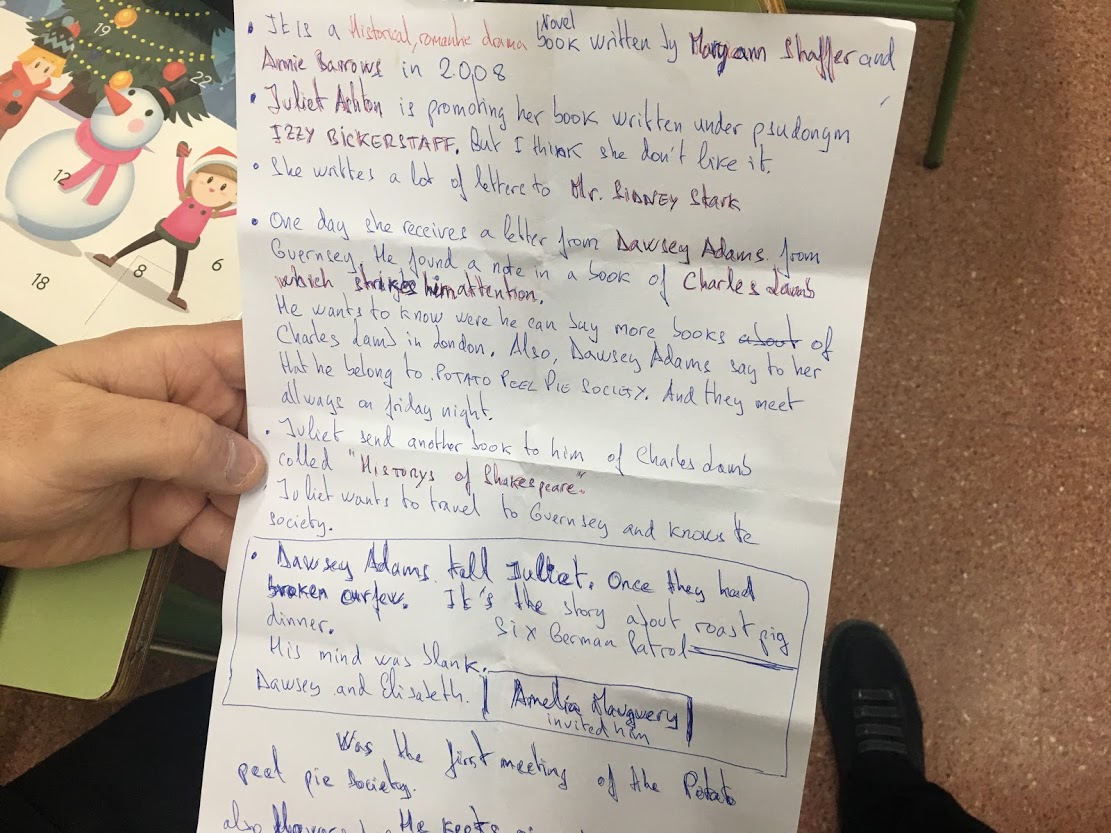 19
22
12
8
6
18
• It is a Historical, romantic drama novel book written by Maryann Shaffer and
Annie Barrows in 2008
• Juliet Ashton is promoting her book written under psudongm
IZZY BICKERSTAFF. But I think she don't like it.
• She writtes a lot of letters to Mr. SIDNEY Stark
• One day she receives a letter from Dawsey Adams from
Guernsey. He found a note in a book of Charles Lamb
which strikes him attention.
He wants to know were he can buy more books about of
Charles Lamb in London. Also, Dawsey Adams say to her
that he belong to POTATO PEEL PIE SOCIETY. And they meet
allways on friday night.
• Juliet send another book to him of Charles Lamb
called "HISTORYS of Shakespeare".
• Juliet wants to travel to Guernsey and knows the
society.
• Dawsey Adams tell Juliet. Once they had
broken curfew. It's the story about roast pig
dinner. Six German Patrol
His mind was blank.
Dawsey and Elisabeth. Amelia Maugwery
invited him
Was the first meeting of the Potato
peel pie Society.
also He